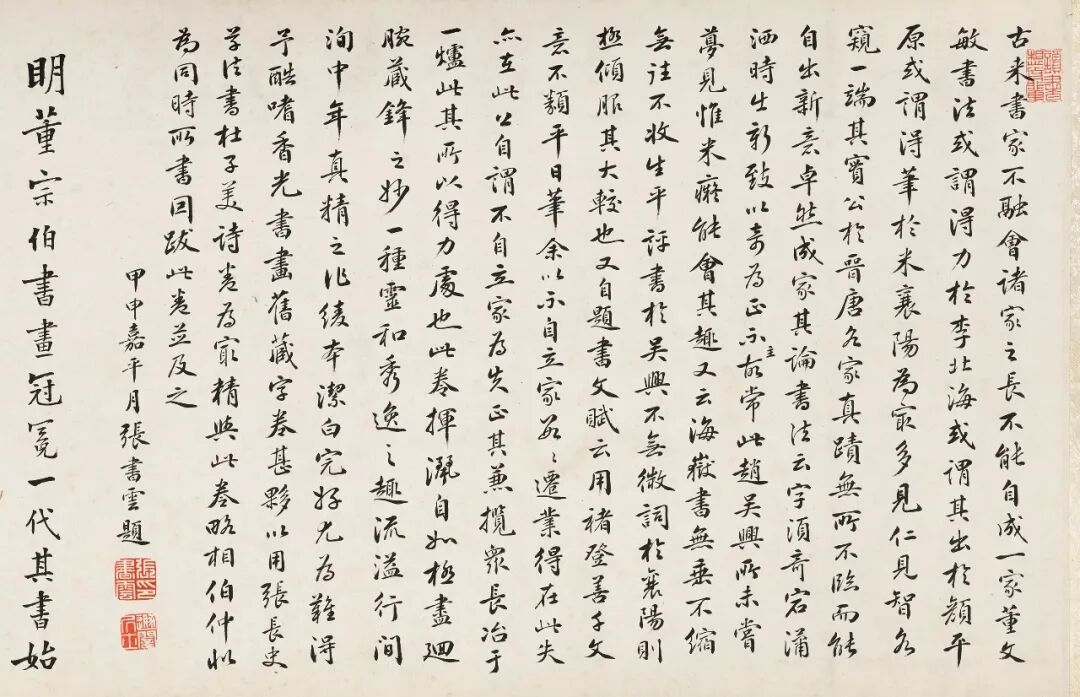 古来書家不融會諸家之長不能自成一家董文
敏書法或謂得力於李北海或謂其出於顏平
原或謂得筆於米襄陽為最多見仁見智各
窺一端其實公於晉唐名家真蹟無所不臨而能
自出新意卓然成家其論書法云字須奇宕瀟
洒時出新致以奇為正不主故常此趙吳興所未嘗
夢見惟米癡能會其趣又云海嶽書無垂不縮
無往不收生平評書於吳興不無微詞於襄陽則
極傾服其大較也又自題書文賦云用褚登善千文
意不類平日筆余以不自立家故數數遷業得在此失
亦在此公自謂不自立家為失正其兼攬眾長冶于
一爐此其所以得力處也此卷揮灑自如極盡迴
腕藏鋒之妙一種靈和秀逸之趣流溢行間
洵中年真精之作綾本潔白完好尤為難得
予酷嗜香光書畫舊藏字卷甚夥以用張長史
筆法書杜子美詩卷為最精與此卷略相伯仲似
為同時所書因跋此卷並及之
甲申嘉平月張書雲題
明董宗伯書畫冠冕一代其書始